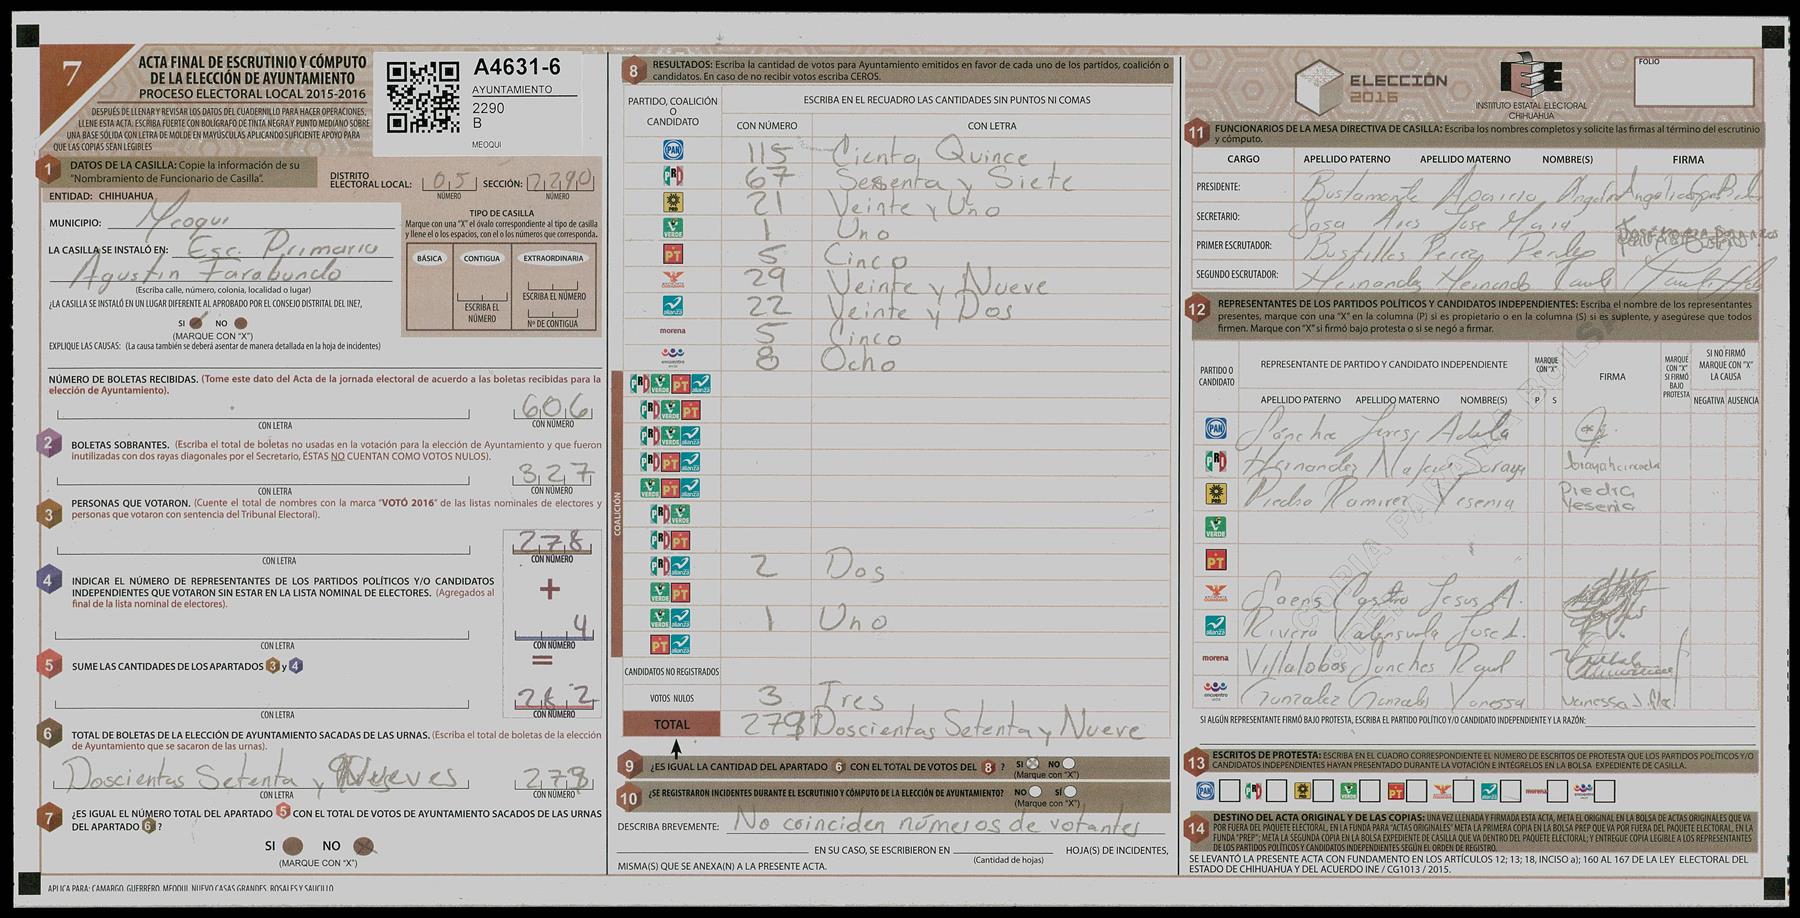 7
ACTA FINAL DE ESCRUTINIO Y CÓMPUTO
DE LA ELECCIÓN DE AYUNTAMIENTO
PROCESO ELECTORAL LOCAL 2015-2016
DESPUÉS DE LLENAR Y REVISAR LOS DATOS DEL CUADERNILLO PARA HACER OPERACIONES,
LLENE ESTA ACTA. ESCRIBA FUERTE CON BOLÍGRAFO DE TINTA NEGRA Y PUNTO MEDIANO SOBRE
UNA BASE SÓLIDA CON LETRA DE MOLDE EN MAYÚSCULAS APLICANDO SUFICIENTE APOYO PARA
QUE LAS COPIAS SEAN LEGIBLES
A4631-6
AYUNTAMIENTO
2290
B
MEOQUI
1 DATOS DE LA CASILLA: Copie la información de su
"Nombramiento de Funcionario de Casilla".
DISTRITO ELECTORAL LOCAL: 05 SECCIÓN: 2290
NÚMERO NÚMERO
ENTIDAD: CHIHUAHUA
MUNICIPIO: Meoqui
LA CASILLA SE INSTALÓ EN: Esc. Primaria
Agustin Farabundo
(Escriba calle, número, colonia, localidad o lugar)
¿LA CASILLA SE INSTALÓ EN UN LUGAR DIFERENTE AL APROBADO POR EL CONSEJO DISTRITAL DEL INE?,
SI NO
(MARQUE CON "X")
EXPLIQUE LAS CAUSAS: (La causa también se deberá asentar de manera detallada en la hoja de incidentes)
TIPO DE CASILLA
Marque con una "X" el óvalo correspondiente al tipo de casilla
y llene el o los espacios, con el o los números que corresponda.
BÁSICA CONTIGUA EXTRAORDINARIA
ESCRIBA EL NÚMERO
ESCRIBA EL NÚMERO
Nº DE CONTIGUA
NÚMERO DE BOLETAS RECIBIDAS. (Tome este dato del Acta de la jornada electoral de acuerdo a las boletas recibidas para la
elección de Ayuntamiento).
606
CON LETRA CON NÚMERO
2 BOLETAS SOBRANTES. (Escriba el total de boletas no usadas en la votación para la elección de Ayuntamiento y que fueron
inutilizadas con dos rayas diagonales por el Secretario, ÉSTAS NO CUENTAN COMO VOTOS NULOS).
327
CON LETRA CON NÚMERO
3 PERSONAS QUE VOTARON. (Cuente el total de nombres con la marca "VOTÓ 2016" de las listas nominales de electores y
personas que votaron con sentencia del Tribunal Electoral).
278
CON LETRA CON NÚMERO
4 INDICAR EL NÚMERO DE REPRESENTANTES DE LOS PARTIDOS POLÍTICOS Y/O CANDIDATOS
INDEPENDIENTES QUE VOTARON SIN ESTAR EN LA LISTA NOMINAL DE ELECTORES. (Agregados al
final de la lista nominal de electores).
+
4
CON LETRA CON NÚMERO
5 SUME LAS CANTIDADES DE LOS APARTADOS 3 y 4
=
282
CON LETRA CON NÚMERO
6 TOTAL DE BOLETAS DE LA ELECCIÓN DE AYUNTAMIENTO SACADAS DE LAS URNAS. (Escriba el total de boletas de la elección
de Ayuntamiento que se sacaron de las urnas).
Doscientas Setenta y
CON LETRA CON NÚMERO
7 ¿ES IGUAL EL NÚMERO TOTAL DEL APARTADO 5 CON EL TOTAL DE VOTOS DE AYUNTAMIENTO SACADOS DE LAS URNAS
DEL APARTADO 6?
SI NO
(MARQUE CON "X")
APLICA PARA: CAMARGO, GUERRERO, MEOQUI, NUEVO CASAS GRANDES, ROSALES Y SAUCILLO
8 RESULTADOS: Escriba la cantidad de votos para Ayuntamiento emitidos en favor de cada uno de los partidos, coalición o
candidatos. En caso de no recibir votos escriba CEROS.
PARTIDO, COALICIÓN O CANDIDATO
ESCRIBA EN EL RECUADRO LAS CANTIDADES SIN PUNTOS NI COMAS
CON NÚMERO CON LETRA
PAN 115 Ciento Quince
PRI 67 Sesenta y Siete
PRD 21 Veinte y Uno
VERDE 1 Uno
PT 5 Cinco
29 Veinte y Nueve
alianza 22 Veinte y Dos
morena 5 Cinco
encuentro 8 Ocho
COALICIÓN
PRI VERDE PT alianza
PRI VERDE PT
PRI VERDE alianza
PRI PT alianza
VERDE PT alianza
PRI VERDE
PRI PT
PRI alianza 2 Dos
VERDE PT
VERDE alianza 1 Uno
PT alianza
CANDIDATOS NO REGISTRADOS
VOTOS NULOS 3 Tres
TOTAL 279 Doscientas Setenta y Nueve
9 ¿ES IGUAL LA CANTIDAD DEL APARTADO 6 CON EL TOTAL DE VOTOS DEL 8 ? SI NO
(Marque con "X")
10 ¿SE REGISTRARON INCIDENTES DURANTE EL ESCRUTINIO Y CÓMPUTO DE LA ELECCIÓN DE AYUNTAMIENTO? NO SÍ
(Marque con "X")
DESCRIBA BREVEMENTE: No coinciden números de votantes
EN SU CASO, SE ESCRIBIERON EN HOJA(S) DE INCIDENTES,
(Cantidad de hojas)
MISMA(S) QUE SE ANEXA(N) A LA PRESENTE ACTA.
ELECCIÓN
2016
IEE
INSTITUTO ESTATAL ELECTORAL
CHIHUAHUA
FOLIO
11 FUNCIONARIOS DE LA MESA DIRECTIVA DE CASILLA: Escriba los nombres completos y solicite las firmas al término del escrutinio
y cómputo.
CARGO APELLIDO PATERNO APELLIDO MATERNO NOMBRE(S) FIRMA
PRESIDENTE: Bustamante Aparicio
SECRETARIO: Jose Maria
PRIMER ESCRUTADOR: Bustillos Perez Pedro
SEGUNDO ESCRUTADOR: Hernandez Hernando
12 REPRESENTANTES DE LOS PARTIDOS POLÍTICOS Y CANDIDATOS INDEPENDIENTES: Escriba el nombre de los representantes
presentes, marque con una "X" en la columna (P) si es propietario o en la columna (S) si es suplente, y asegúrese que todos
firmen. Marque con "X" si firmó bajo protesta o si se negó a firmar.
PARTIDO O CANDIDATO
REPRESENTANTE DE PARTIDO Y CANDIDATO INDEPENDIENTE
APELLIDO PATERNO APELLIDO MATERNO NOMBRE(S)
MARQUE CON "X"
P S
FIRMA
MARQUE CON "X" SI FIRMÓ BAJO PROTESTA
SI NO FIRMÓ MARQUE CON "X" LA CAUSA
NEGATIVA AUSENCIA
PAN Adela
PRI Hernandez Soraya
PRD Piedra Ramirez Yesenia Piedra Yesenia
VERDE
PT
Saens Castro Jesus A.
alianza Rivera Valensuela Jose L.
morena Villalobos Sanches Raul
encuentro Gonzalez Gonzalez Vanessa
SI ALGÚN REPRESENTANTE FIRMÓ BAJO PROTESTA, ESCRIBA EL PARTIDO POLÍTICO Y/O CANDIDATO INDEPENDIENTE Y LA RAZÓN:
13 ESCRITOS DE PROTESTA: ESCRIBA EN EL CUADRO CORRESPONDIENTE EL NÚMERO DE ESCRITOS DE PROTESTA QUE LOS PARTIDOS POLÍTICOS Y/O
CANDIDATOS INDEPENDIENTES HAYAN PRESENTADO DURANTE LA VOTACIÓN E INTÉGRELOS EN LA BOLSA EXPEDIENTE DE CASILLA.
PAN PRI PRD VERDE PT alianza morena encuentro
14 DESTINO DEL ACTA ORIGINAL Y DE LAS COPIAS: UNA VEZ LLENADA Y FIRMADA ESTA ACTA, META EL ORIGINAL EN LA BOLSA DE ACTAS ORIGINALES QUE VA
POR FUERA DEL PAQUETE ELECTORAL, EN LA FUNDA "ACTAS ORIGINALES" META LA PRIMERA COPIA EN LA BOLSA PREP QUE VA POR FUERA DEL PAQUETE ELECTORAL, EN LA
FUNDA "PREP"; META LA SEGUNDA COPIA EN LA BOLSA EXPEDIENTE DE CASILLA QUE VA DENTRO DEL PAQUETE ELECTORAL; Y ENTREGUE COPIA LEGIBLE A LOS REPRESENTANTES
DE LOS PARTIDOS POLÍTICOS Y CANDIDATOS INDEPENDIENTES SEGÚN EL ORDEN DE REGISTRO.
SE LEVANTÓ LA PRESENTE ACTA CON FUNDAMENTO EN LOS ARTÍCULOS 12; 13; 18, INCISO a); 160 AL 167 DE LA LEY ELECTORAL DEL
ESTADO DE CHIHUAHUA Y DEL ACUERDO INE / CG1013 / 2015.